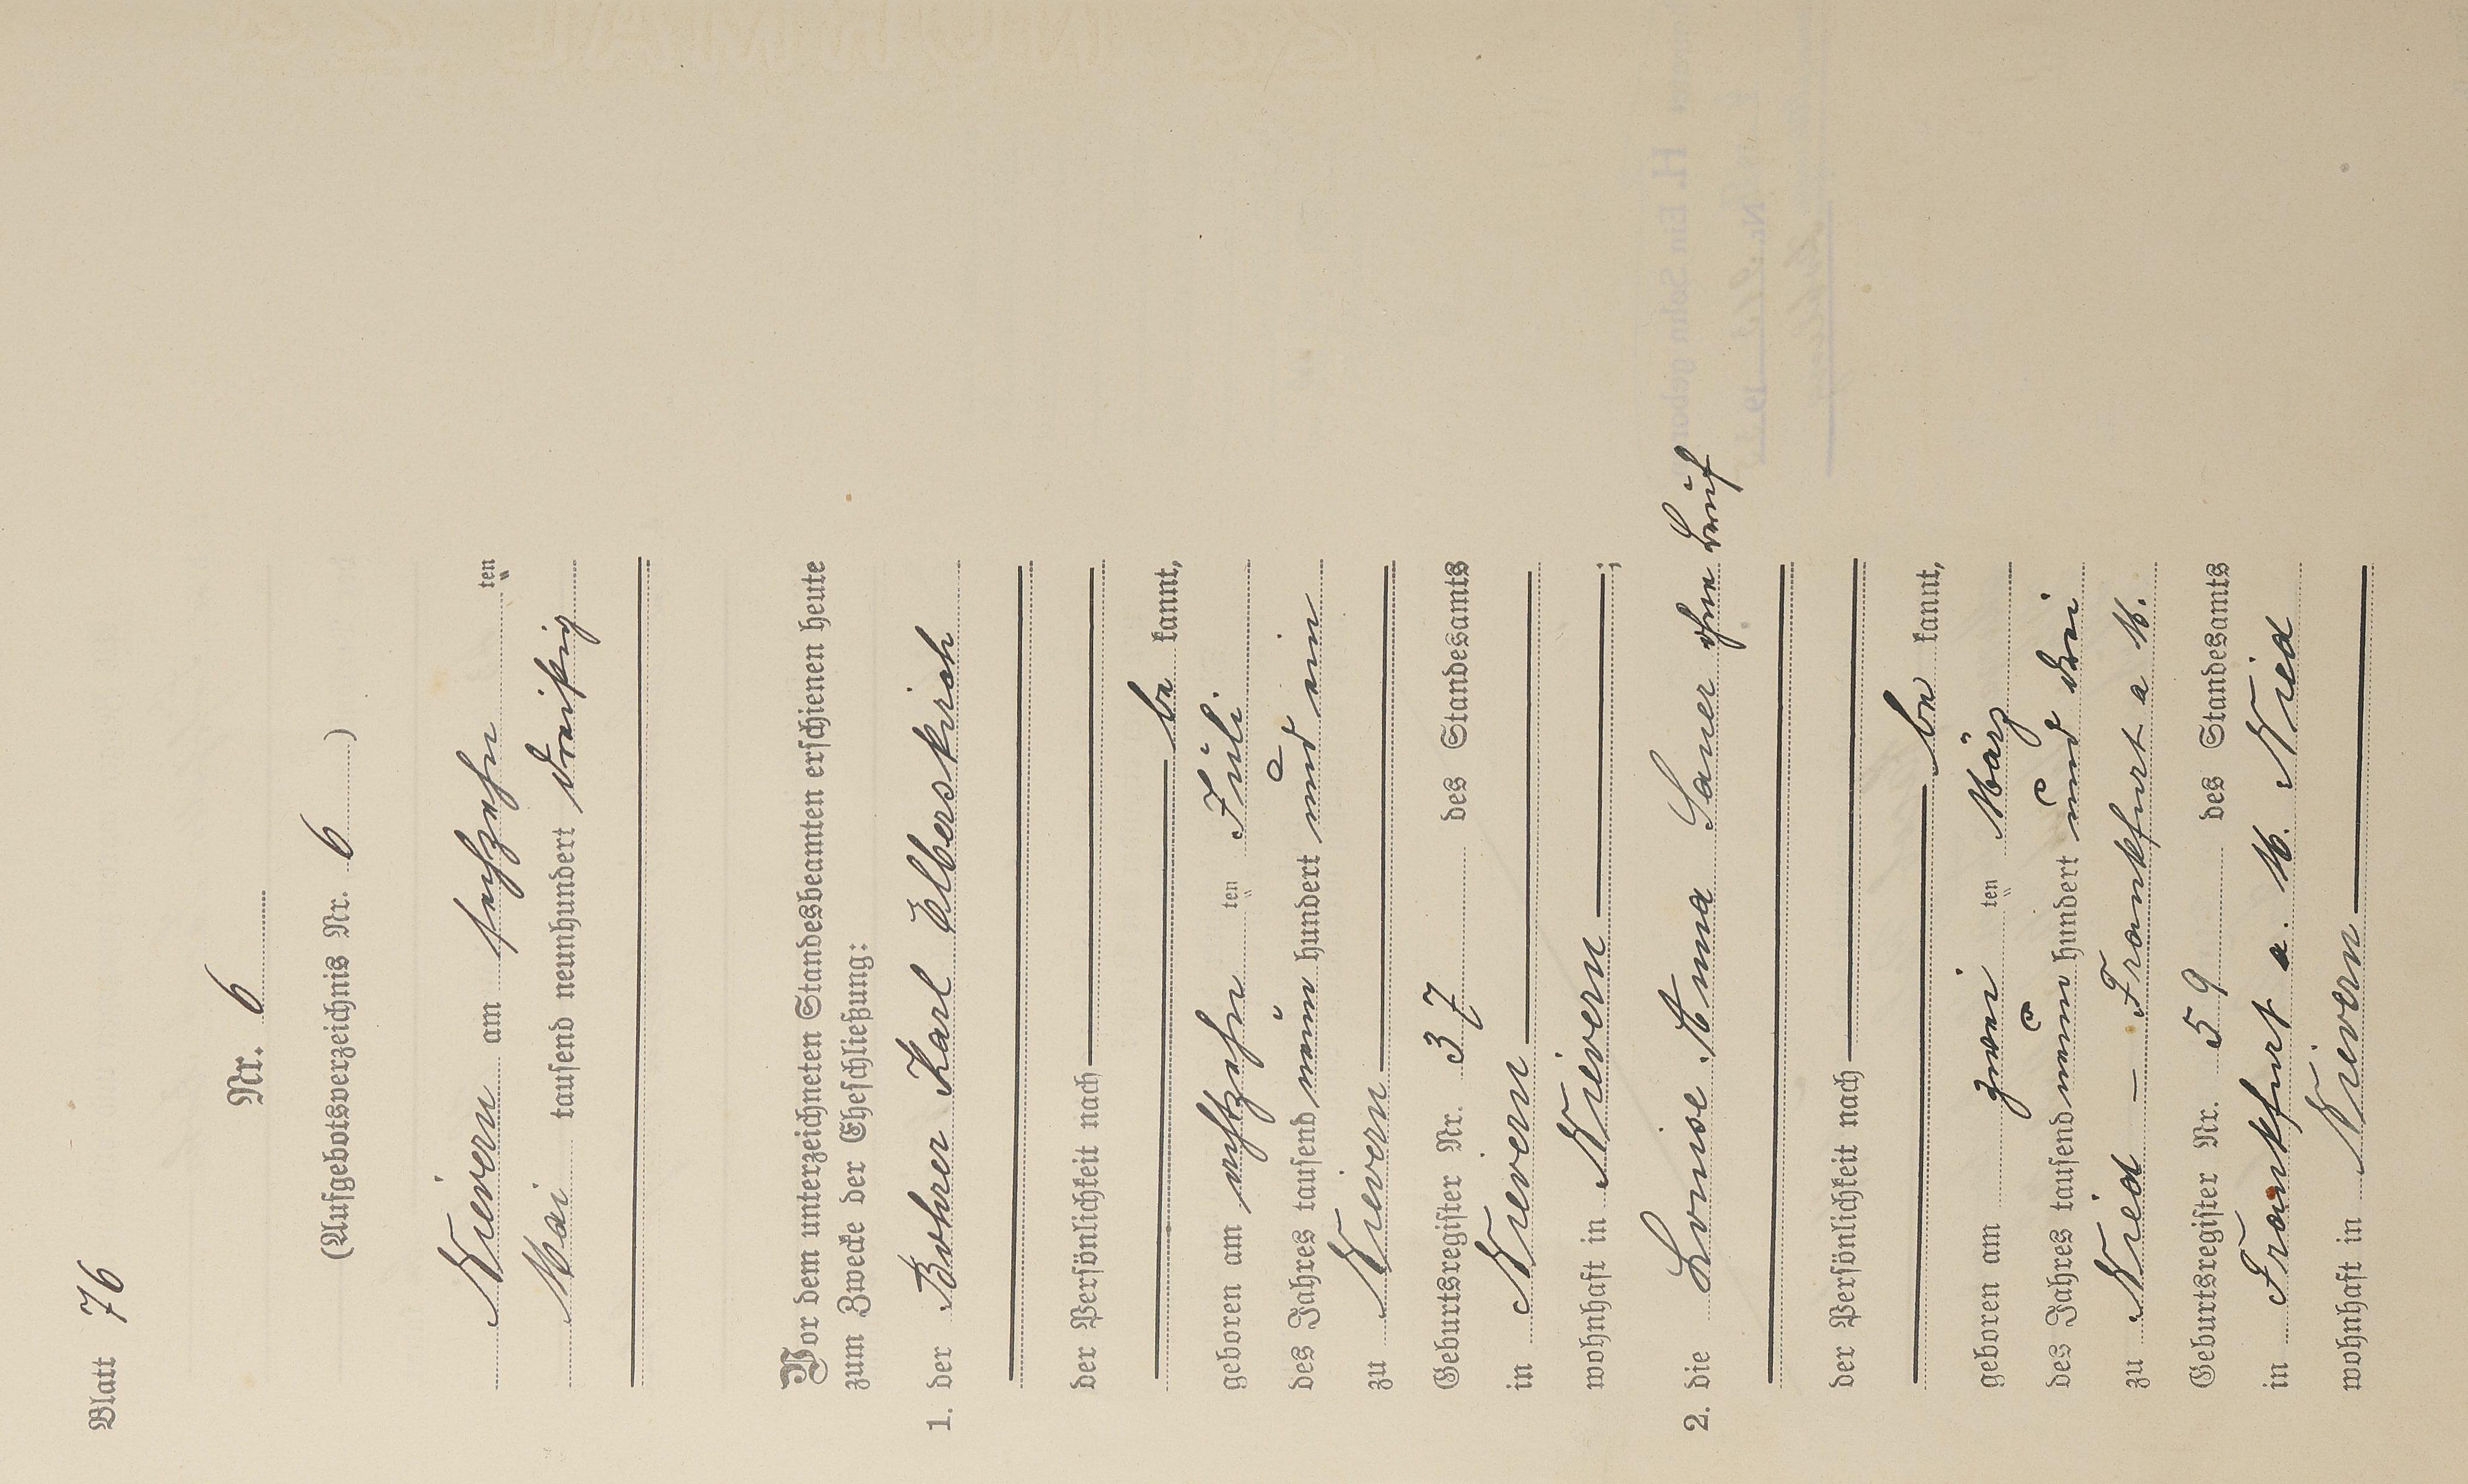 Blatt 76
Nr. 6
(Aufgebotsverzeichnis Nr. 6)
Nievern am sechzehn ten
Mai tausend neunhundert dreißig
Vor dem unterzeichneten Standesbeamten erschienen heute
zum Zwecke der Eheschließung:
1. der Bohrer Karl Elberskirch
der Persönlichkeit nach
be kannt,
geboren am achtzehn ten Juli
des Jahres tausend neun hundert und ein
zu Nievern
Geburtsregister Nr. 37 des Standesamts
in Nievern
wohnhaft in Nievern;
2. die Louise Anna Sauer ohne Beruf
der Persönlichkeit nach
be kannt,
geboren am zwei ten März
des Jahres tausend neun hundert und drei
zu Nied - Frankfurt a M.
Geburtsregister Nr. 59 des Standesamts
in Frankfurt a. M. Nied
wohnhaft in Nievern